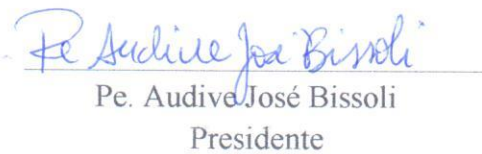 Pe Audive José Bissoli
Pe. Audive José Bissoli
Presidente